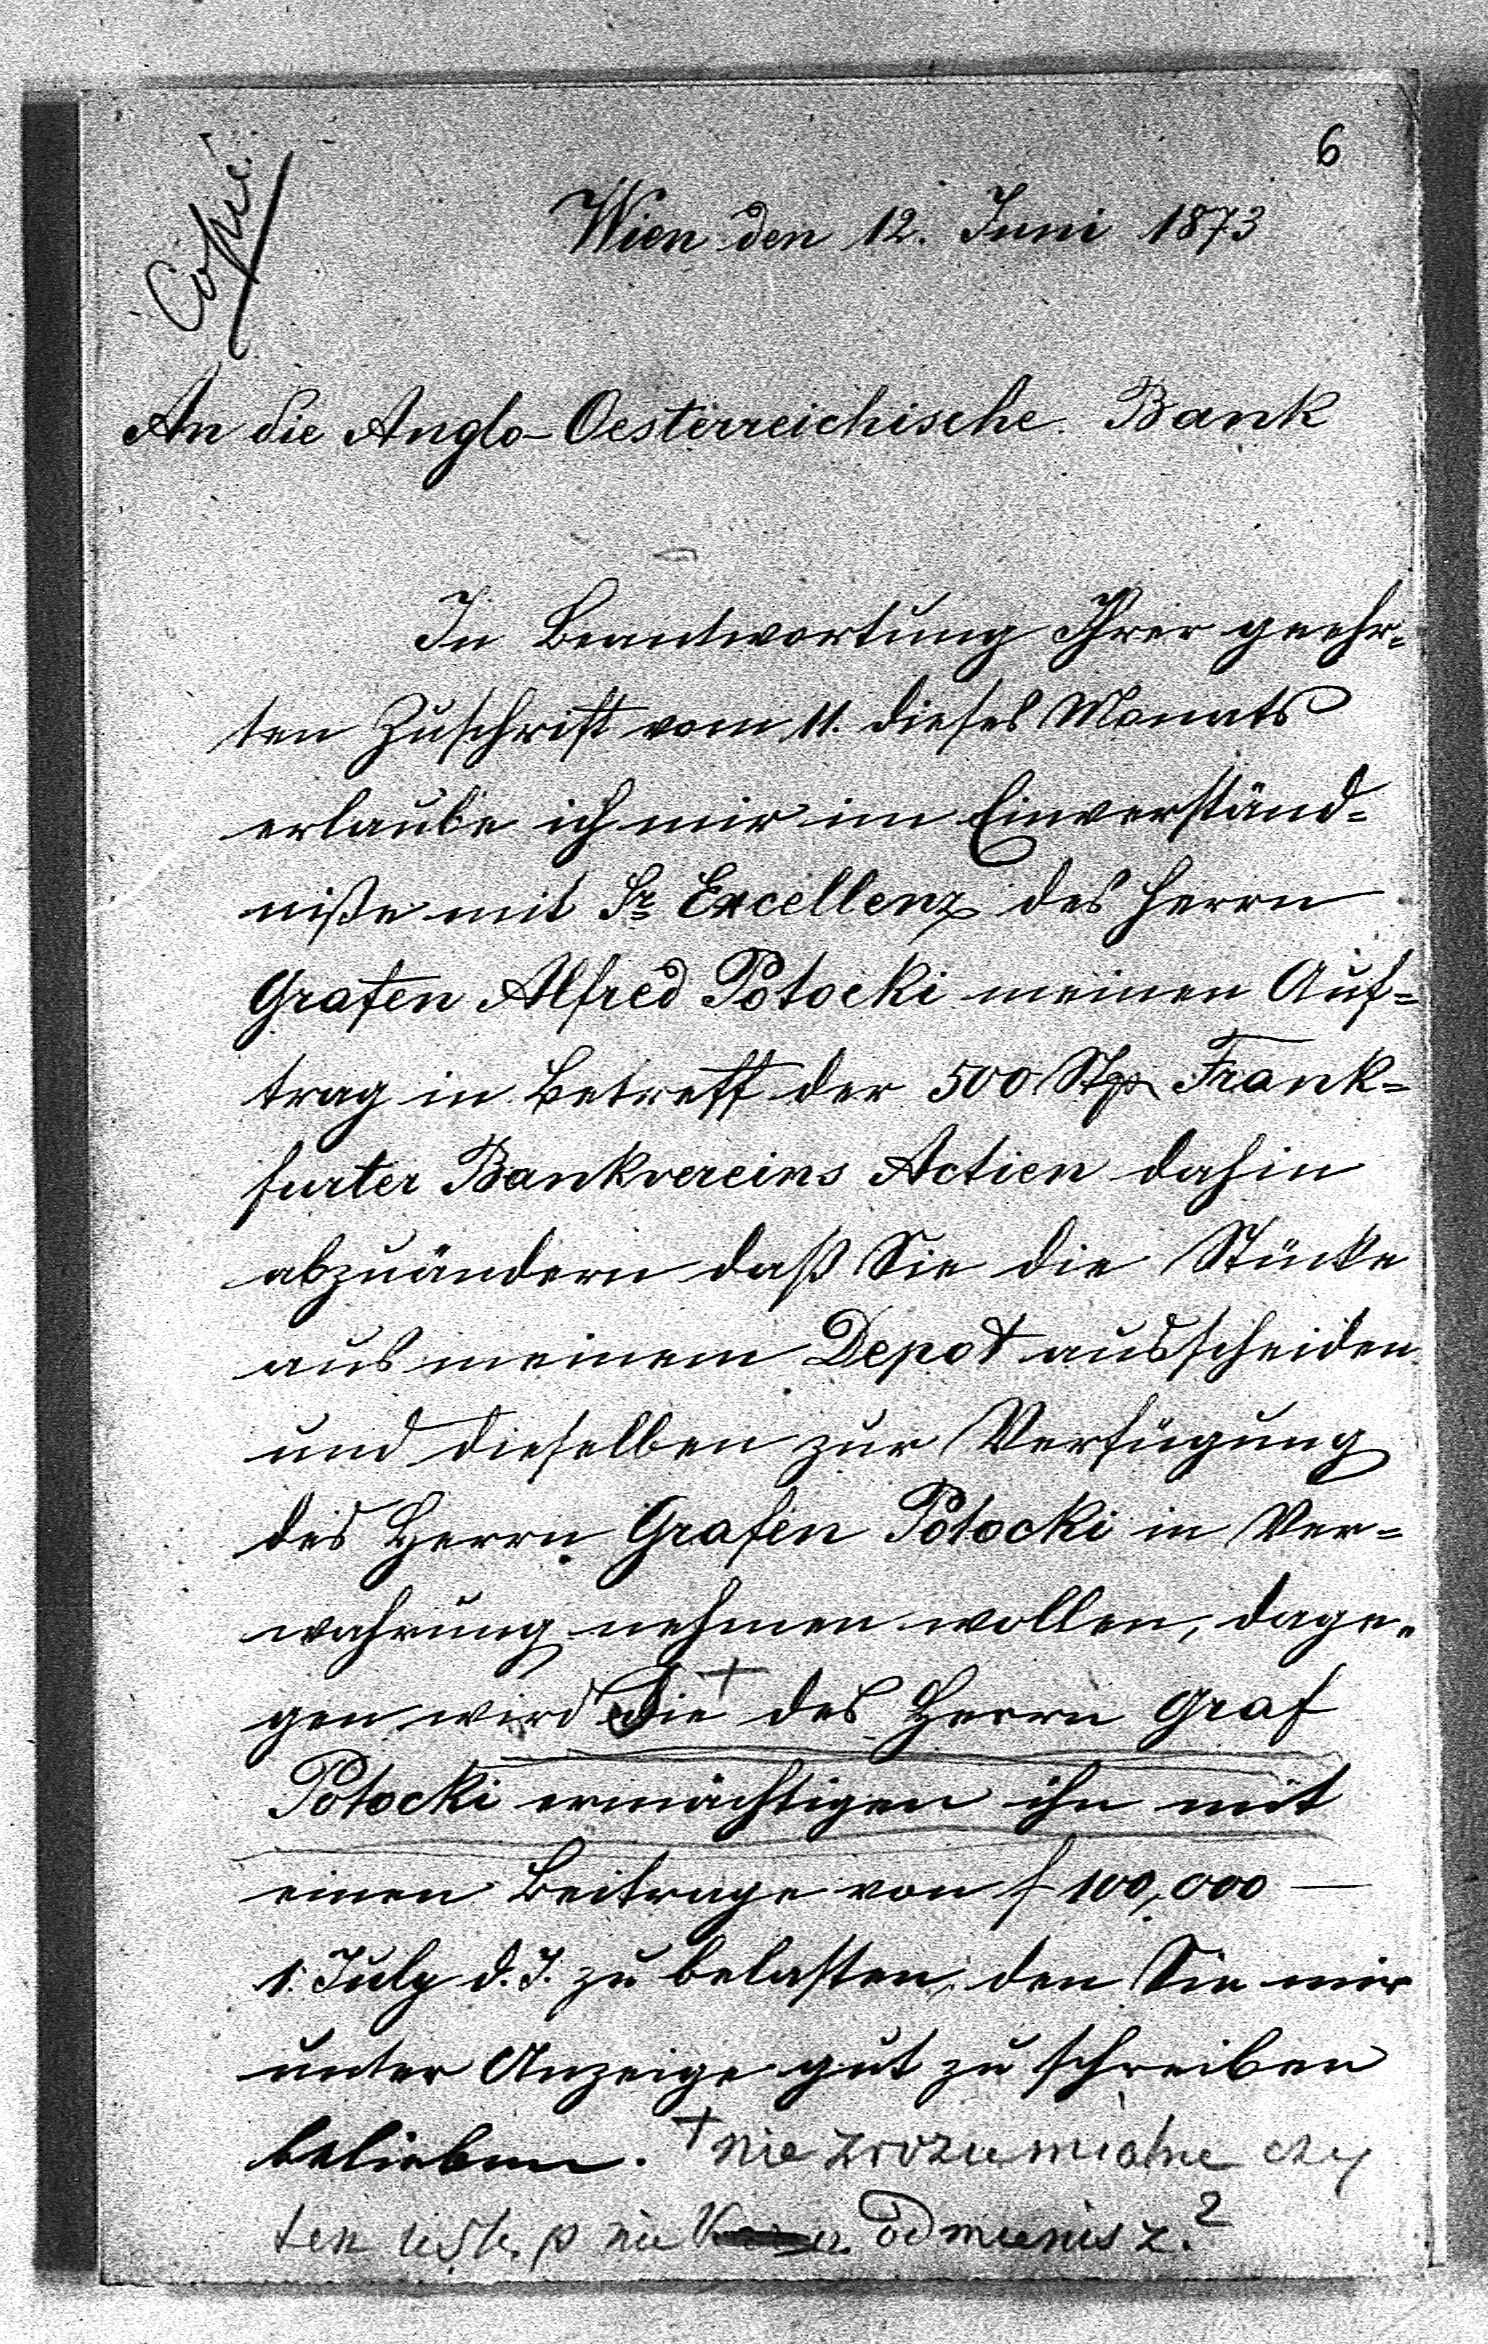 6
Copie
Wien den 12. Juni 1873
An die Anglo-Oesterreichische Bank
In Beantwortung Ihrer geehr-
ten Zuschrift vom 11. dieses Monats
erlaube ich mir im Einverständ-
niße mit Sr Excellenz des Herrn
Grafen Alfred Potocki meinen Auf-
trag in Betreff der 500 Stk Frank-
furter Bankvereins Actien dahin
abzuändern daß Sie die Stücke
aus meinem Depot ausscheiden
und dieselben zur Verfügung
des Herrn Grafen Potocki in Ver-
wahrung nehmen wollen, dage-
gen wird die + des Herrn Graf
Potocki ermächtigen ihn mit
einen Beitrage von f 100,000 —
1. July d. J. zu belasten, den Sie mir
unter Anzeige gut zu schreiben
belieben. + nie zrozumiałne czy
ten ustęp nie odmienisz?